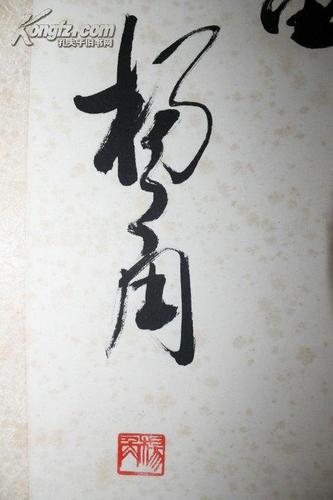 Kongfz.com
孔夫子旧书网
杨角
杨角